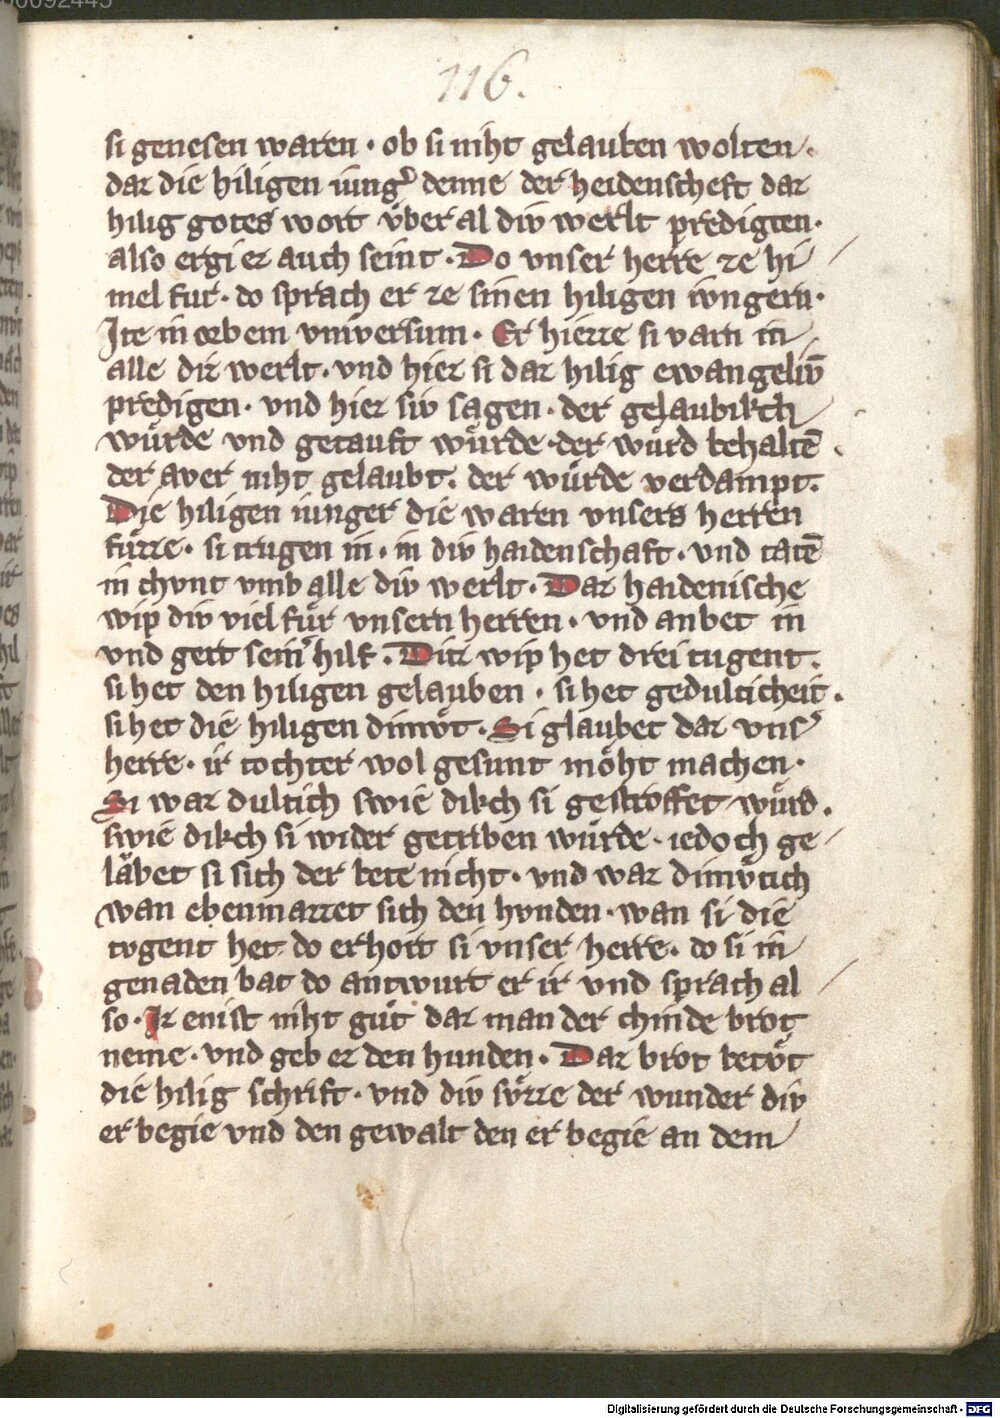 116.
si genesen waren · ob si niht gelauben wolten ·
daz die hiligen iungͤ denne der heidenscheft daz
hilig gotes wort vͤber al div werlt predigten ·
also ergi ez auch seint · Do vnser herre ze hi
mel fur · do sprach er ze sinen hiligen ivngern ·
Ite in orbem vniversum · Er hiezze si varn in
alle diz werlt · vnd hiez si daz hilig ewangeliv̄
predigen · vnd hiez siv sagen · der gelaubikch
wuͤrde vnd getauft wuͤrde · der wuͤrd behaltē ·
der aver niht gelaubt · der wuͤrde verdampt ·
Die hiligen iunger die waren vnsers herren
fuͤzze · si trugen in · in div haidenschaft · vnd tatē
in chunt vmb alle div werlt · Daz haidenische
wip div viel fuͤr vnsern herren · vnd anbet in
vnd gert seinͤ hilf · Ditz wip het drei tugent ·
si het den hiligen gelauben · si het gedulticheit ·
si het die hiligen dimvͤt · Si glaubet daz vnsͤ
herre · ir tochter wol gesunt moͤht machen ·
Si waz dultich swie dikch si gestroffet wuͤrd ·
swie dikch si wider getriben wuͤrde · iedoch ge
laͤbet si sich der bete nicht · vnd waz dimvͤtich
wan ebenmazzet sich den hvnden · wan si die
tvgent het do erhort si vnser herre · do si in
genaden bat do antwurt er ir vnd sprach al
so · Iz enist niht guͤt daz man der chinde brot
neme · vnd geb ez den hunden · Daz brot betvͤt
die hilig schrift · vnd div svͤzze der wunder div
er begie vnd den gewalt den er begie an dem
Digitalisierung gefördert durch die Deutsche Forschungsgemeinschaft - DFG